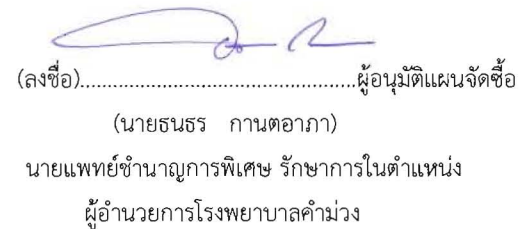 (ลงชื่อ)................................................ผู้อนุมัติแผนจัดซื้อ
(นายธนธร กานตอาภา)
นายแพทย์ชำนาญการพิเศษ รักษาการในตำแหน่ง
ผู้อำนวยการโรงพยาบาลคำม่วง